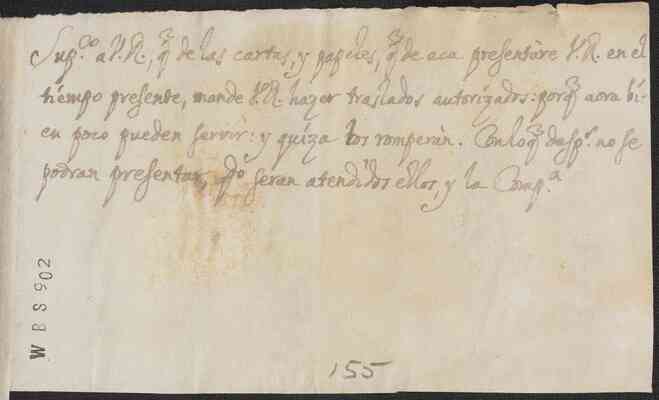 Sup.co a V.R., q̃ de las cartas, y papeles, q̃ de aca presentàre V.R. en el
tiempo presente, mande V.R. hazer traslados autorizados: porq̃ aora bi-
en poco pueden servir: y quiza los romperàn. Con loq̃ desp.s no se
podran presentar, qdo seran atendidos ellos, y la Comp.a
WBS 902
155